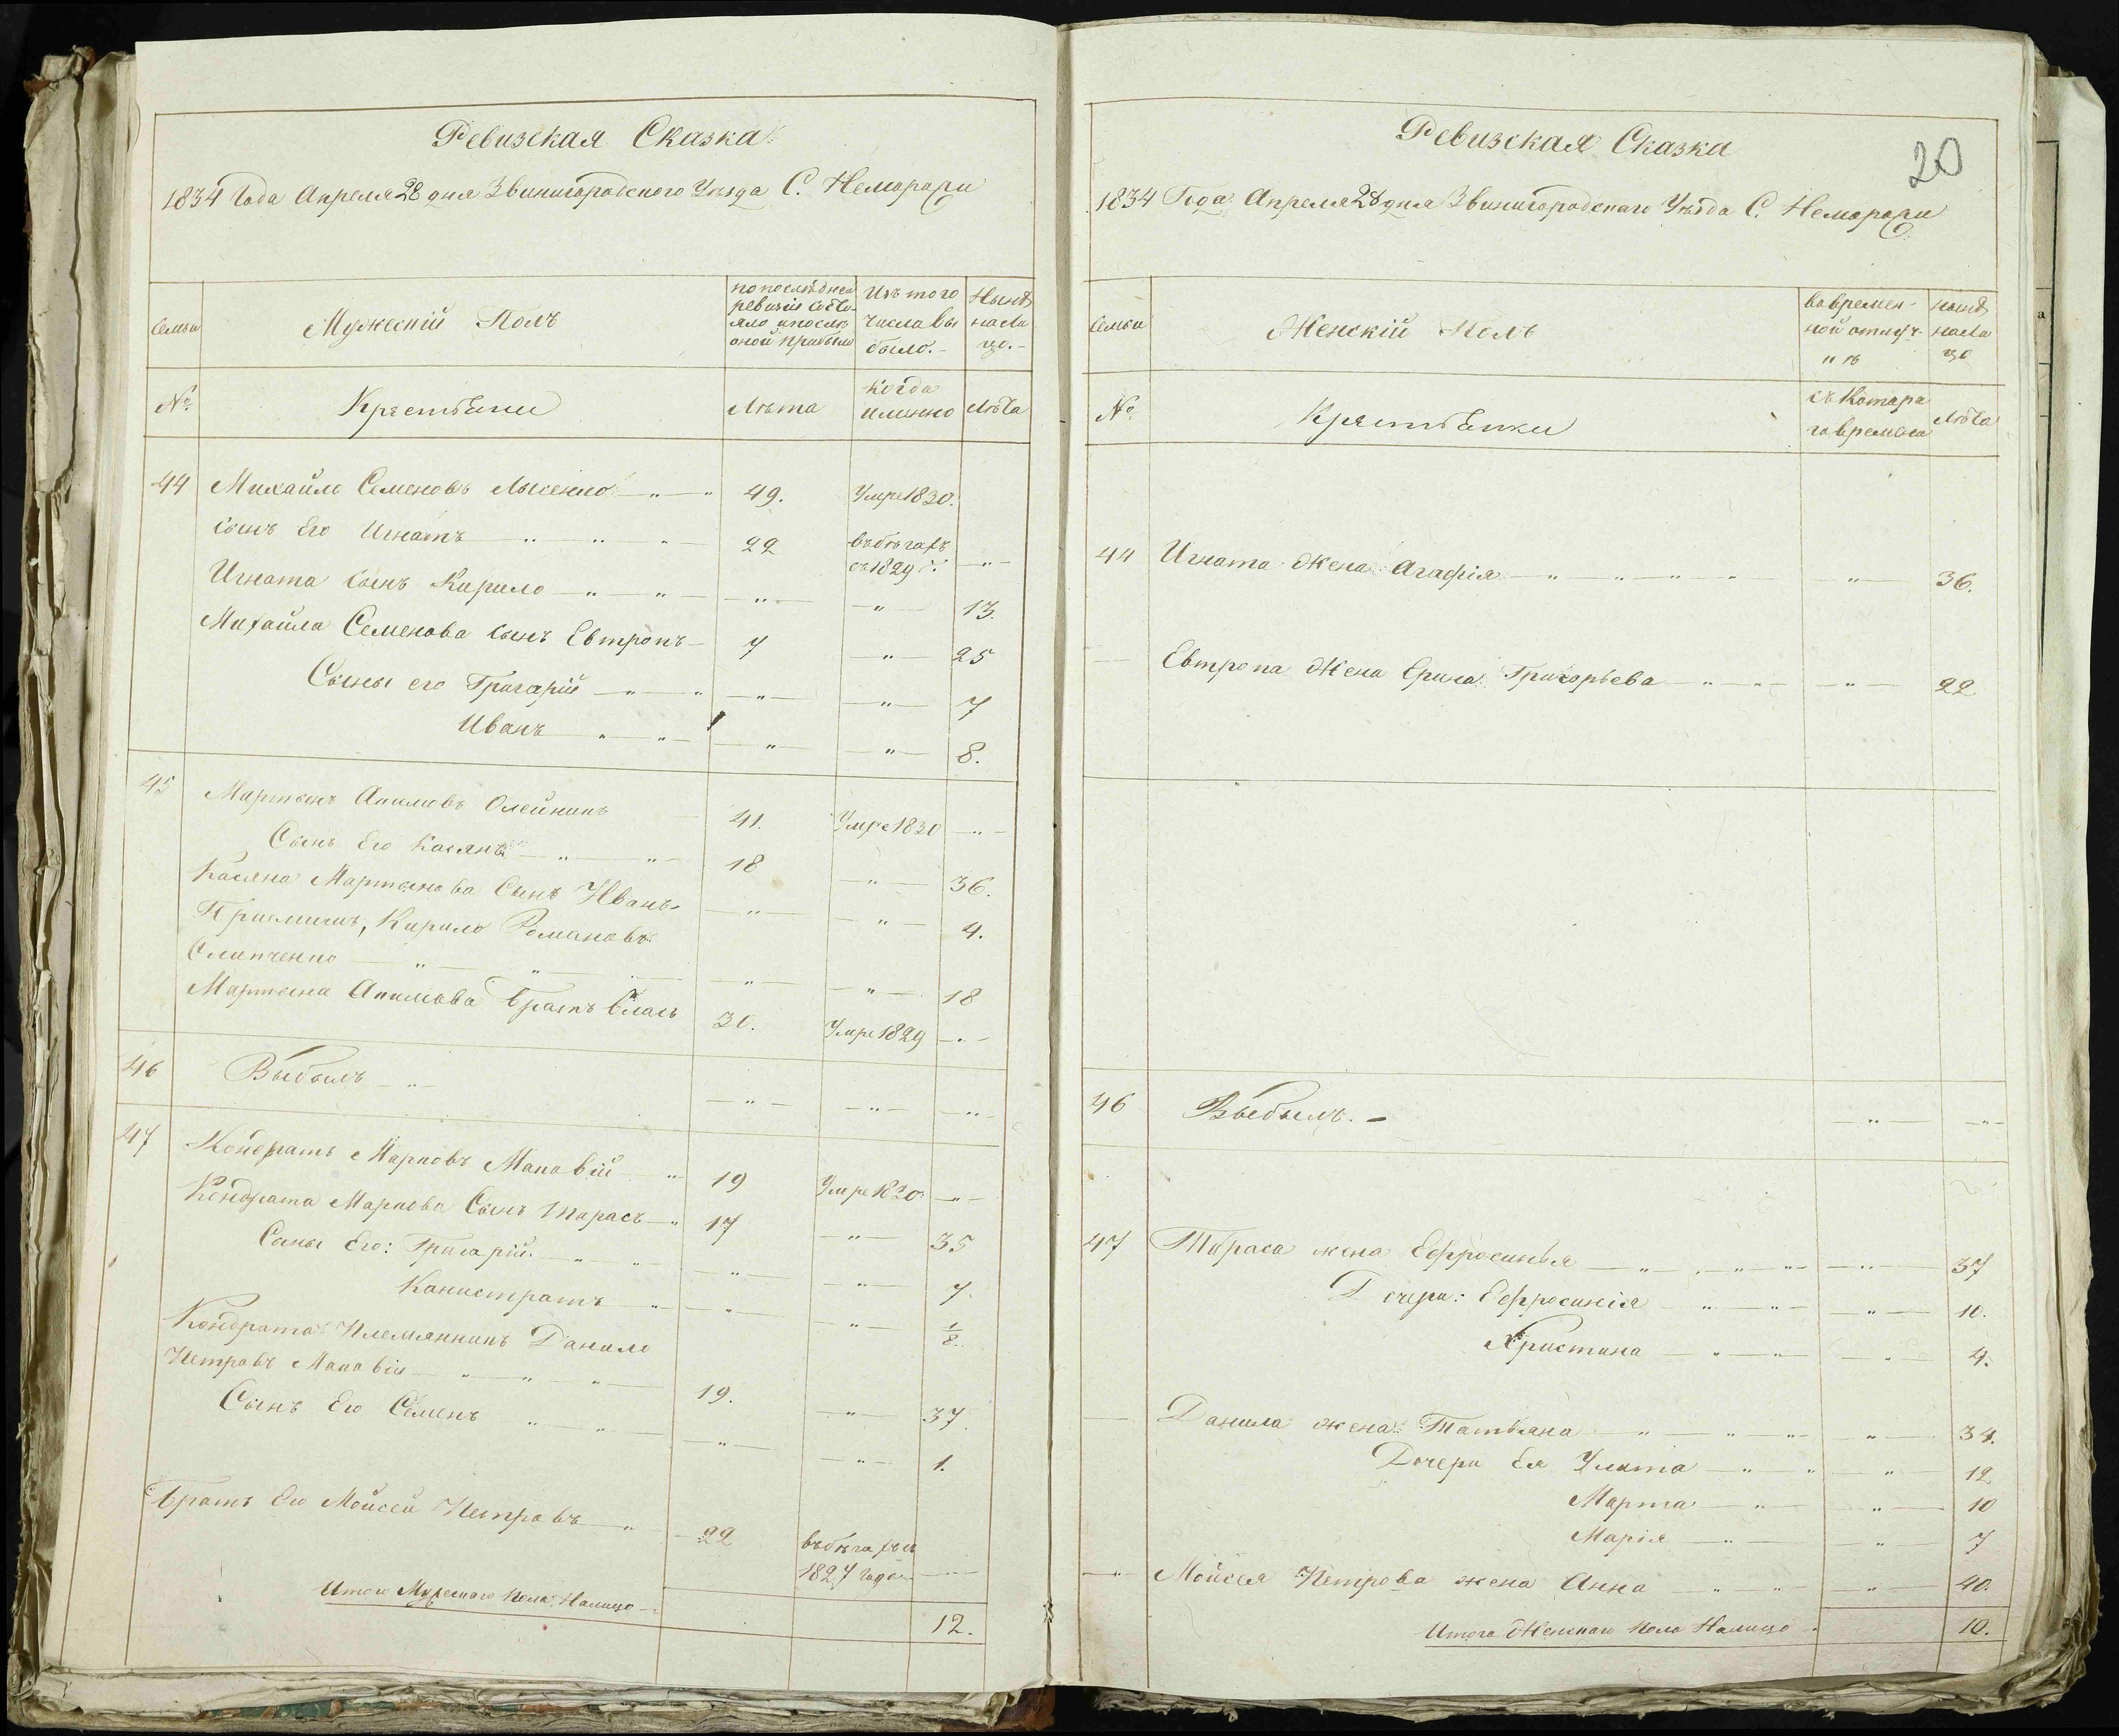 Ревизская Сказка
1834 Года Апреля 28 дня Звинигородского Уѣзда С. Неморожи
Семьи
Мужеский Полъ
по последней ревизіи состояло и после оной прибыло
Изъ того числа выбыло.
Нынѣ на лицо.
№
Крестьяни
Лѣта
Когда именно
Лѣта
44 Михайло Семеновъ Лысенко 49. Умре 1830.
сынъ Его Игнатъ 22 въ бѣгахъ съ 1829 г.
Игната сынъ Кирило 13.
Михайла Семенова сынъ Евтропъ 7 25
Сыны его Григорий 7
Иванъ 8.
45 Мартынъ Акимовъ Олейникъ 41. Умре 1830
Сынъ Его Касянъ 18 36.
Касяна Мартынова Сынъ Иванъ 4.
Приемишъ, Кирило Романовъ
Слипченко 18
Мартына Акимова братъ Власъ 30. Умре 1829
46 Выбылъ
47 Кондратъ Марковъ Маковій 19 Умре 1830
Кондрата Маркова Сынъ Тарасъ 17 35
Сыны Его: Григорій 7.
Канистратъ 1/8.
Кондрата Племянникъ Данило
Петровъ Маковій 19. 37.
Сынъ Его Семенъ 1.
Братъ Его Мойсей Петровъ 22 въ бѣгахъ съ
1827 года
Итого Мужескаго пола Налицо 12.
20
Ревизская Сказка
1834 Года Апреля 28 дня Звинигородскаго Уѣзда С. Неморожи
Семьи
Женскій Полъ
во времен-
ной отлуч-
кѣ
нынѣ
на ли
цо
№
Крестьянки
съ Котора
го времени
Лѣта
44 Игната Жена Агафія 36.
Евтропа Жена Ерина Григорьева 22
46 Выбылъ.
47 Тараса жена Ефросинья 37
Дочери: Ефросинія 10.
Христина 4.
Данила жена Татьяна 34.
Дочери Ея Улита 12
Марта 10
Марія 7
Мойсея Петрова жена Анна 40.
Итого Женскаго пола Налицо 10.